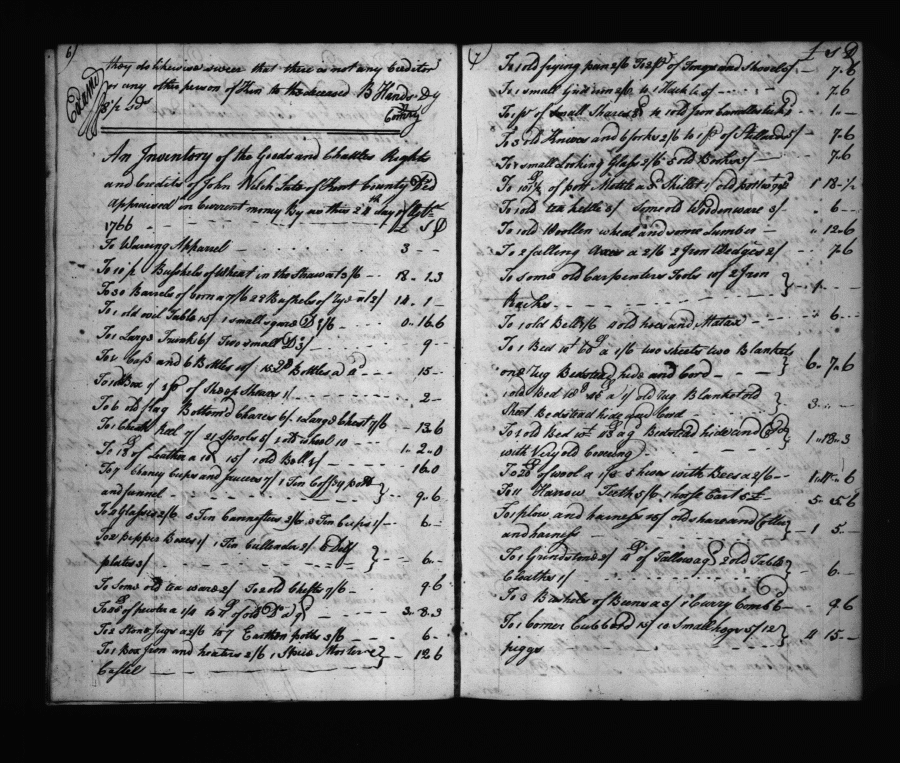 6)
they do likewise swear that there is not any Creditor
or any other person of Kin to the deceased B Hands Dy
Examd
8 1/2 Sds
Comry
An Inventory of the Goods and Chattles Rights
and Credits of John Welch Late of Kent County Decd
Appraised in Current money By us this 2 day of
1766
£ S D
To Wareing Apparrel 3 --
To 10 1/2 Bushels of Wheat in the Straw at 3/6 18 - 1.3
To 30 Barrels of corn a 7/6 22 Bushels of Rye a 2/ 14 . 1 -
To 1 old oval Table 15/ 1 small square Do 1/6 0 .. 16.6
To 1 Large Trunk 6/ Two small Do 3/ 9 -
To 1 Case and 6 Bottles 10/ 15 Do Bottles a 4d 15 -
To 1 old Box 1/ 1 pr of Sheep Shears 1/ 2 -
To 6 old flag Bottom'd Chairs 6/ 1 Large Chest 7/6 - 13.6
To 1 Check Reel 7/ 21 Spools 5/ 1 old wheel 10 1 .. 2 .. 0
To 18 of Leather a 10 15/ 1 old Bell 1/ 16.0
To 7 Cheney Cups and saucers 7/ 1 Tin Coffy pott
and funnel 9 .. 6
To 2 Glasses 2/6 2 Tin Cannesters 2/6 2 Tin Cups 1/ 6 -
To 2 pepper Boxes 1/ 1 Tin Cullender 2/ 6 Delf
plates 3/ 6 -
To Some old tea ware 2/ To 2 old Chests 7/6 9.6
To 28 of pewter a 1/10 to of old Do 3. 8.3
To 2 Stone Jugs a 2/6 to 7 Earthen potts 3/6 6 -
To 1 Box Iron and heaters 2/6 1 Spice Morter
Castel 12.6
7)
£ S D
To 1 old frying pan 2/6 To 2 pr of Tongs and Shovels 5/ 7.6
To 1 small Grid iron 2/6 to 1 5/ 7.6
To 1 pr of small Sheares to 2 old Iron Candlesticks 1 --
To 5 old Knives and 6 forks 2/6 to 1 pr of Stillards 5/ 7.6
To 1 small Looking Glass 2/6 5 old Books 5/ 7.6
To 101 1/2 of pott Mettle a 4d Skillet 1/ old 1 18 - 1/2
To 1 old tea kettle 3/ Some old Woddenware 3/ 6 -
To 1 old Woollen wheal and some Lumber .. 12 .. 6
To 2 falling Axes a 2/6 2 Iron Wedges 2/ 7.6
To Some old Carpenters Tools 10/ 2 Iron
Racks - 1 -
To 1 old Bell 2/6 2 old hoes and Mattax 6 -
To 1 Bed wt 60 a 1/6 two sheets two Blankets
one Rug Bedstead hide and Cord 6 .. 7 .. 6
1 old Bed 10/ a 1/ old Rug Blanket old
Sheet Bedstead hide and Cord 3 . -
To 1 old Bed wt 48 a 9d Bedstead hide and Cord
with Very old Covering 1 .. 18 .. 3
To 28 of wool a 1/3 5 hives with Bees a 2/6 1 .. 14 .. 6
To 11 Harrow Teeth 5/6 1 horse Cart 5£ 5 .. 5.6
To 1 plow and harness 15/ old share and Colter
and harness 1 5 --
To 1 Grindstone 2/ of Tallow a 6 2 old Table
Cloaths 1/ 6 -
To 3 Bushels of Beans a 3/ 1 Curry Comb 6 9.6
To 1 Corner Cubbord 15/ 10 Small hogs 5/ 12
piggs 4 15 --